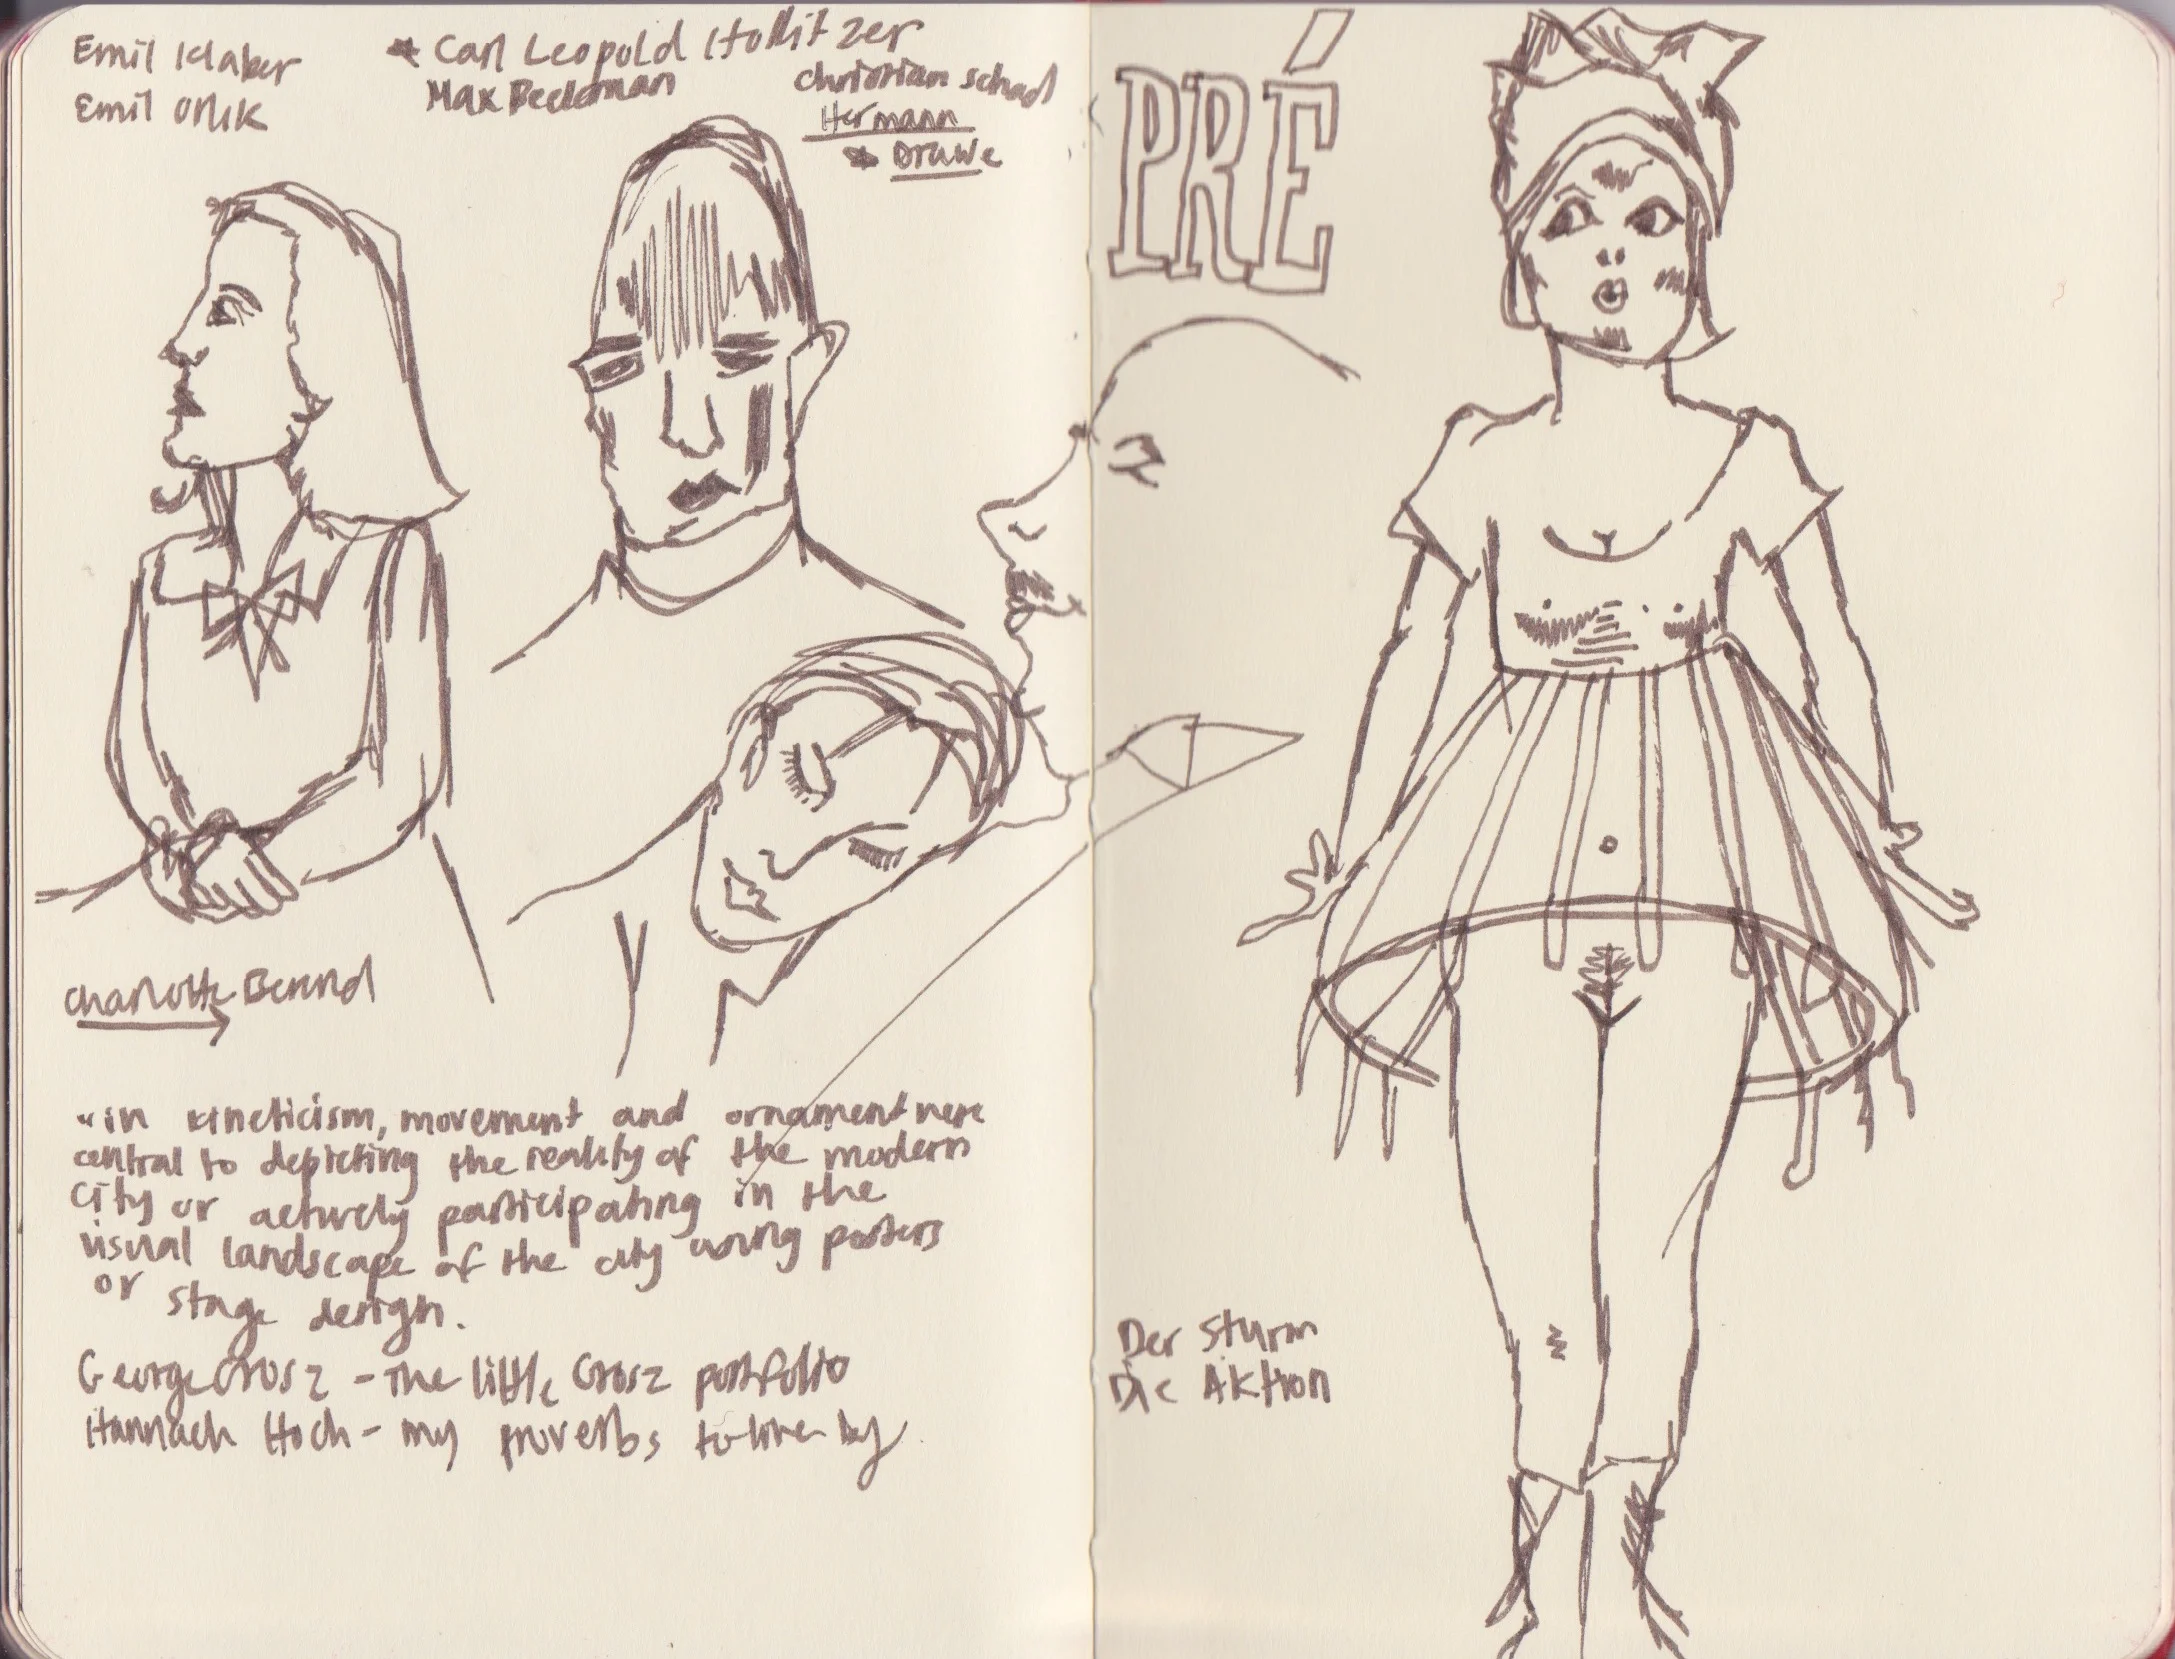 Emil Klaber
Emil Orlik
* Carl Leopold Hollitzer
Max Beckman
Christian Schad
Hermann
* Drawe
PRÉ
Charlotte Berend
"in kineticism, movement and ornament were
central to depicting the reality of the modern
city or actively participating in the
visual landscape of the city using posters
or stage design.
George Grosz - The little Grosz portfolio
Hannach Hoch - my proverbs to live by
Der Sturm
Die Aktion